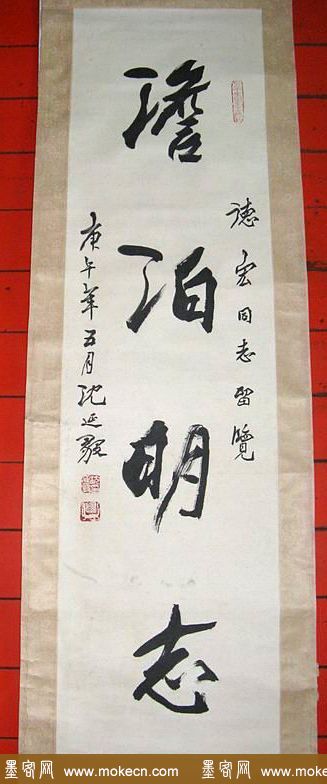 德宏同志留覽
澹泊明志
庚午年五月沈延毅
墨客网 www.mokecn.com 墨客网 www.mokecn.com